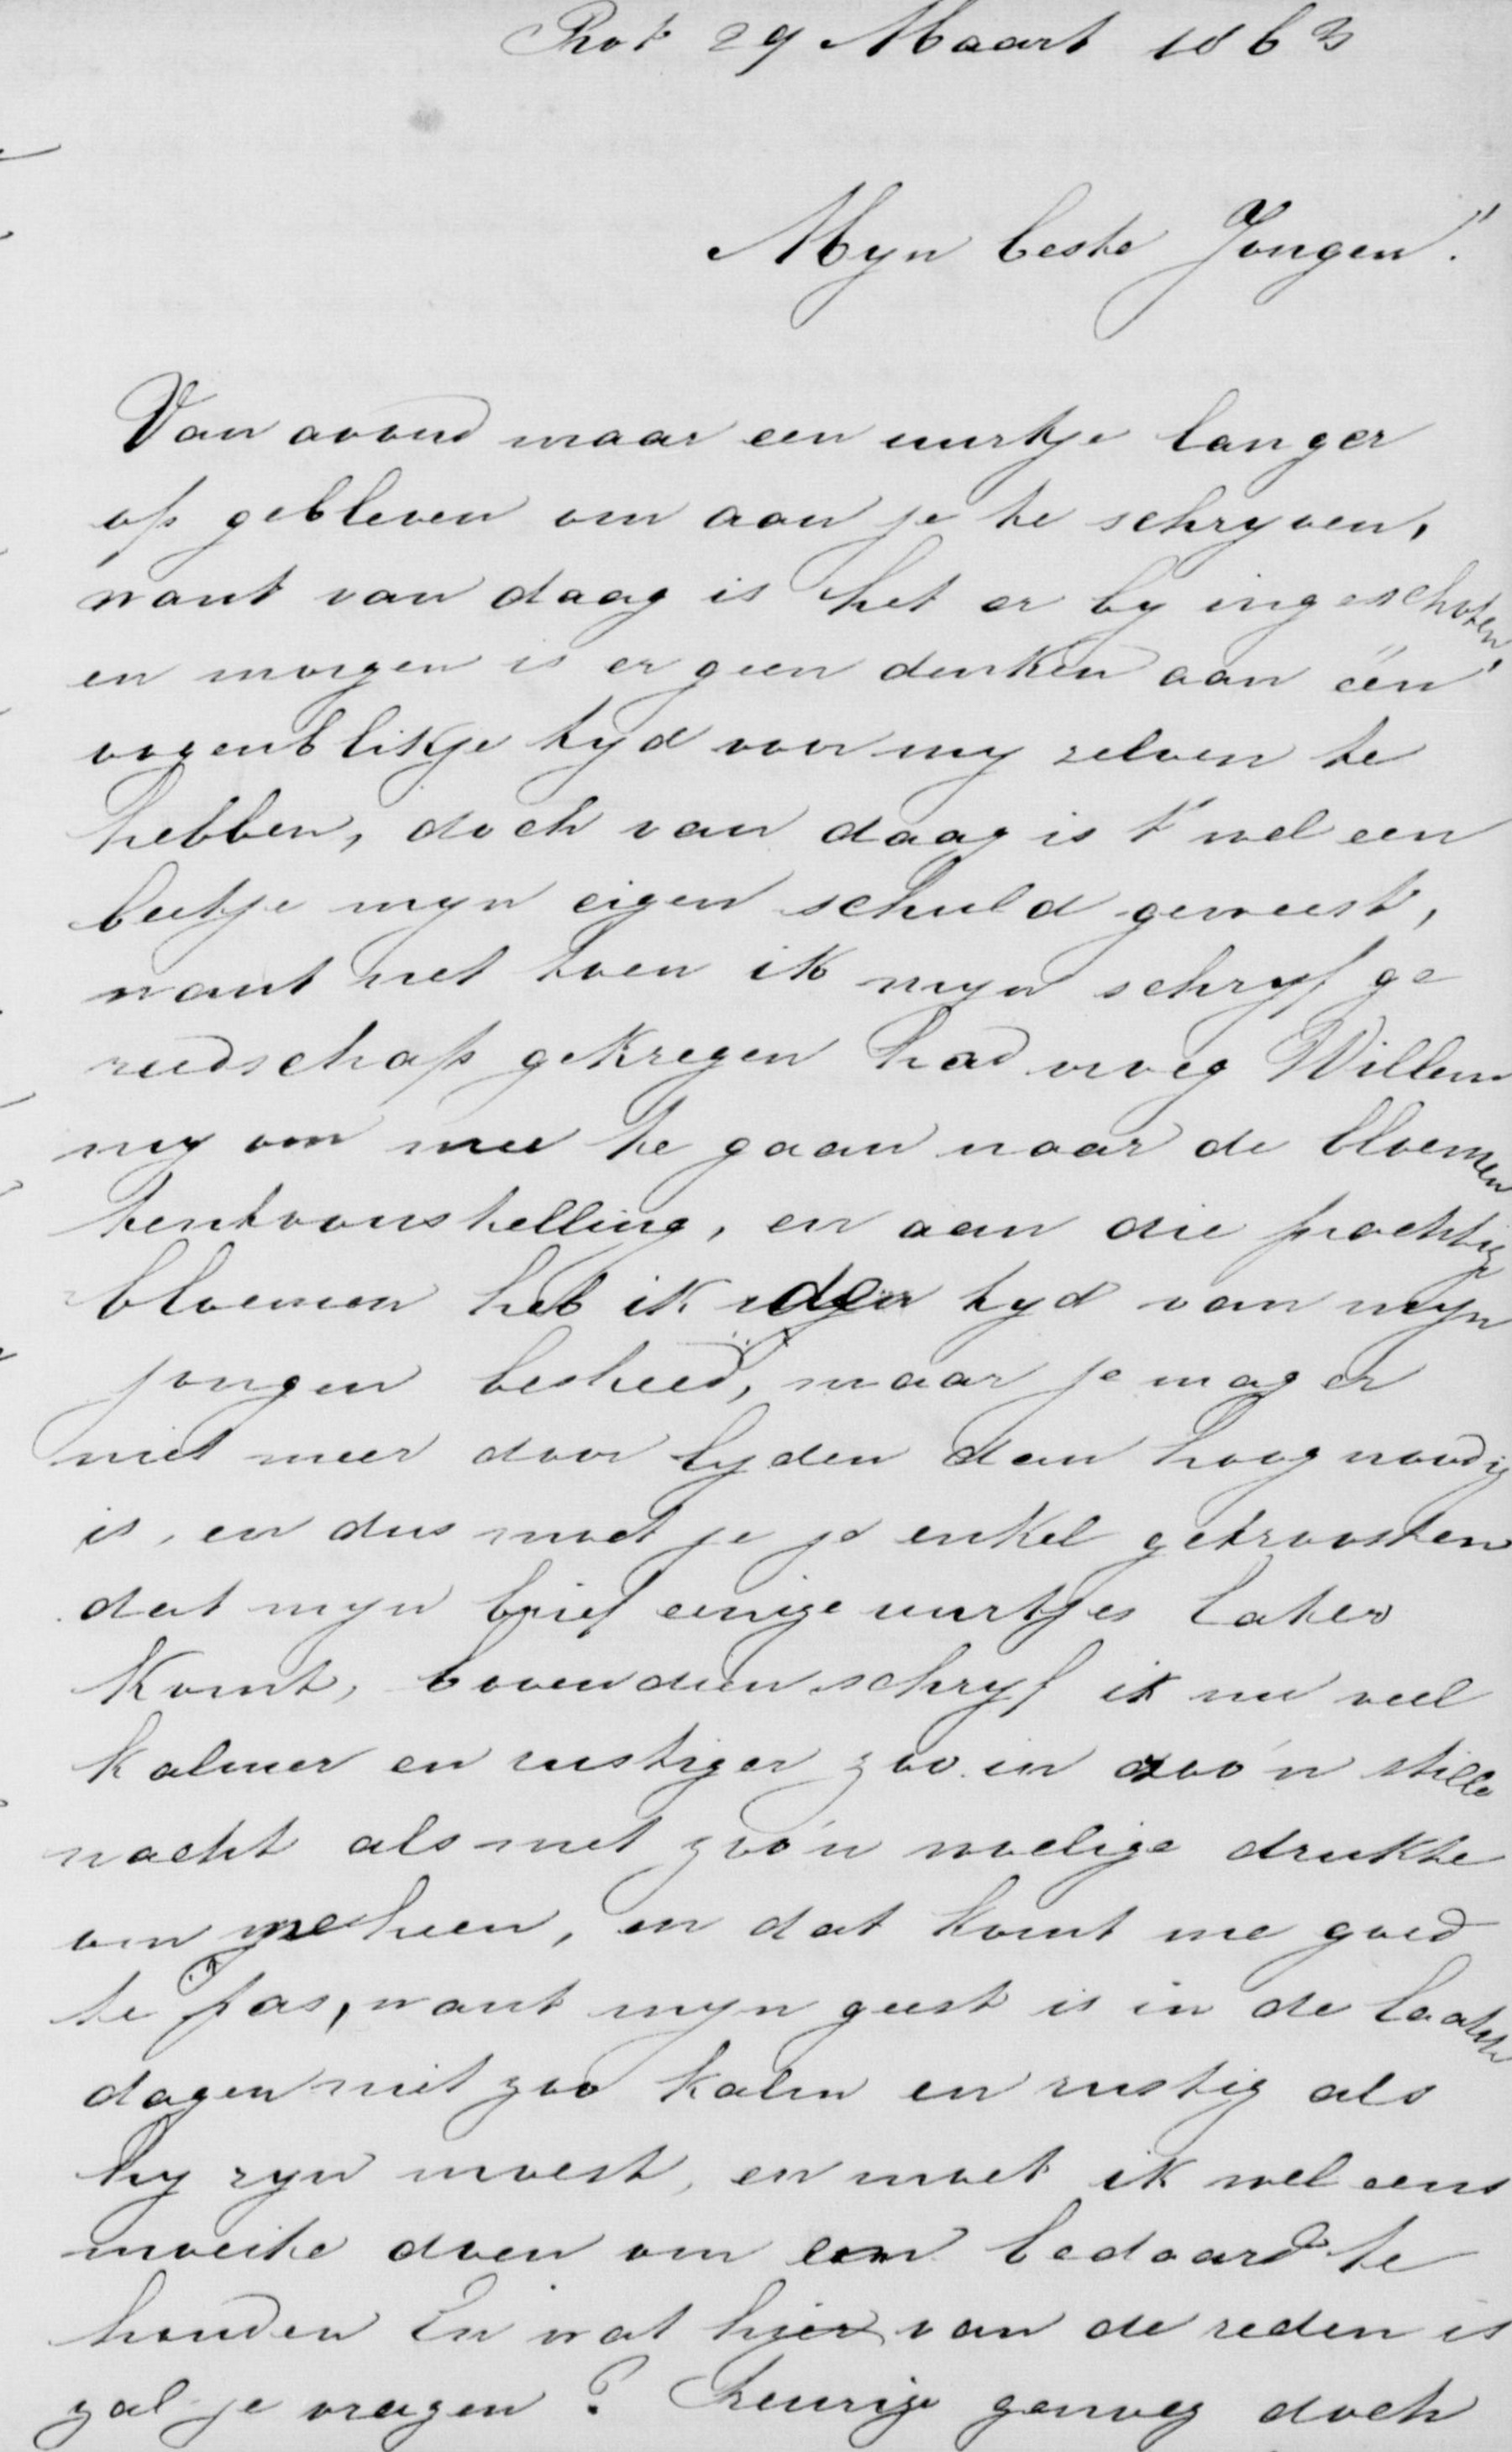 Rot 29 Maart 1863
Myn beste Jongen!
Van avond maar een uurtje langer
op gebleven om aan je te schryven,
want van daag is het er by ingeschoten,
en morgen is er geen denken aan één
oogenblikje tyd voor my zelven te
hebben, doch van daag is 't wel een
beetje myn eigen schuld geweest,
want net toen ik myn schryf ge
reedschap gekregen had vroeg Willem
my om mee te gaan naar de bloemen
tentoonstelling, en aan die prachtige
bloemen heb ik den tyd van myn
jongen besteed, maar je mag er
niet meer door lyden dan hoog noodig
is, en dus moet je je enkel getroosten
dat myn brief eenige uurtjes later
komt, bovendien schryf ik nu veel
kalmer en rustiger zoo in zoo'n stille
nacht als met zoo'n woelige drukte
om me heen, en dat komt me goed
te pas, want myn geest is in de laatste
dagen niet zoo kalm en rustig als
hy zyn moest, en moet ik wel eens
moeite doen om bedaard te
houden En wat hier van de reden is
zal je vragen? Treurige genoeg doch